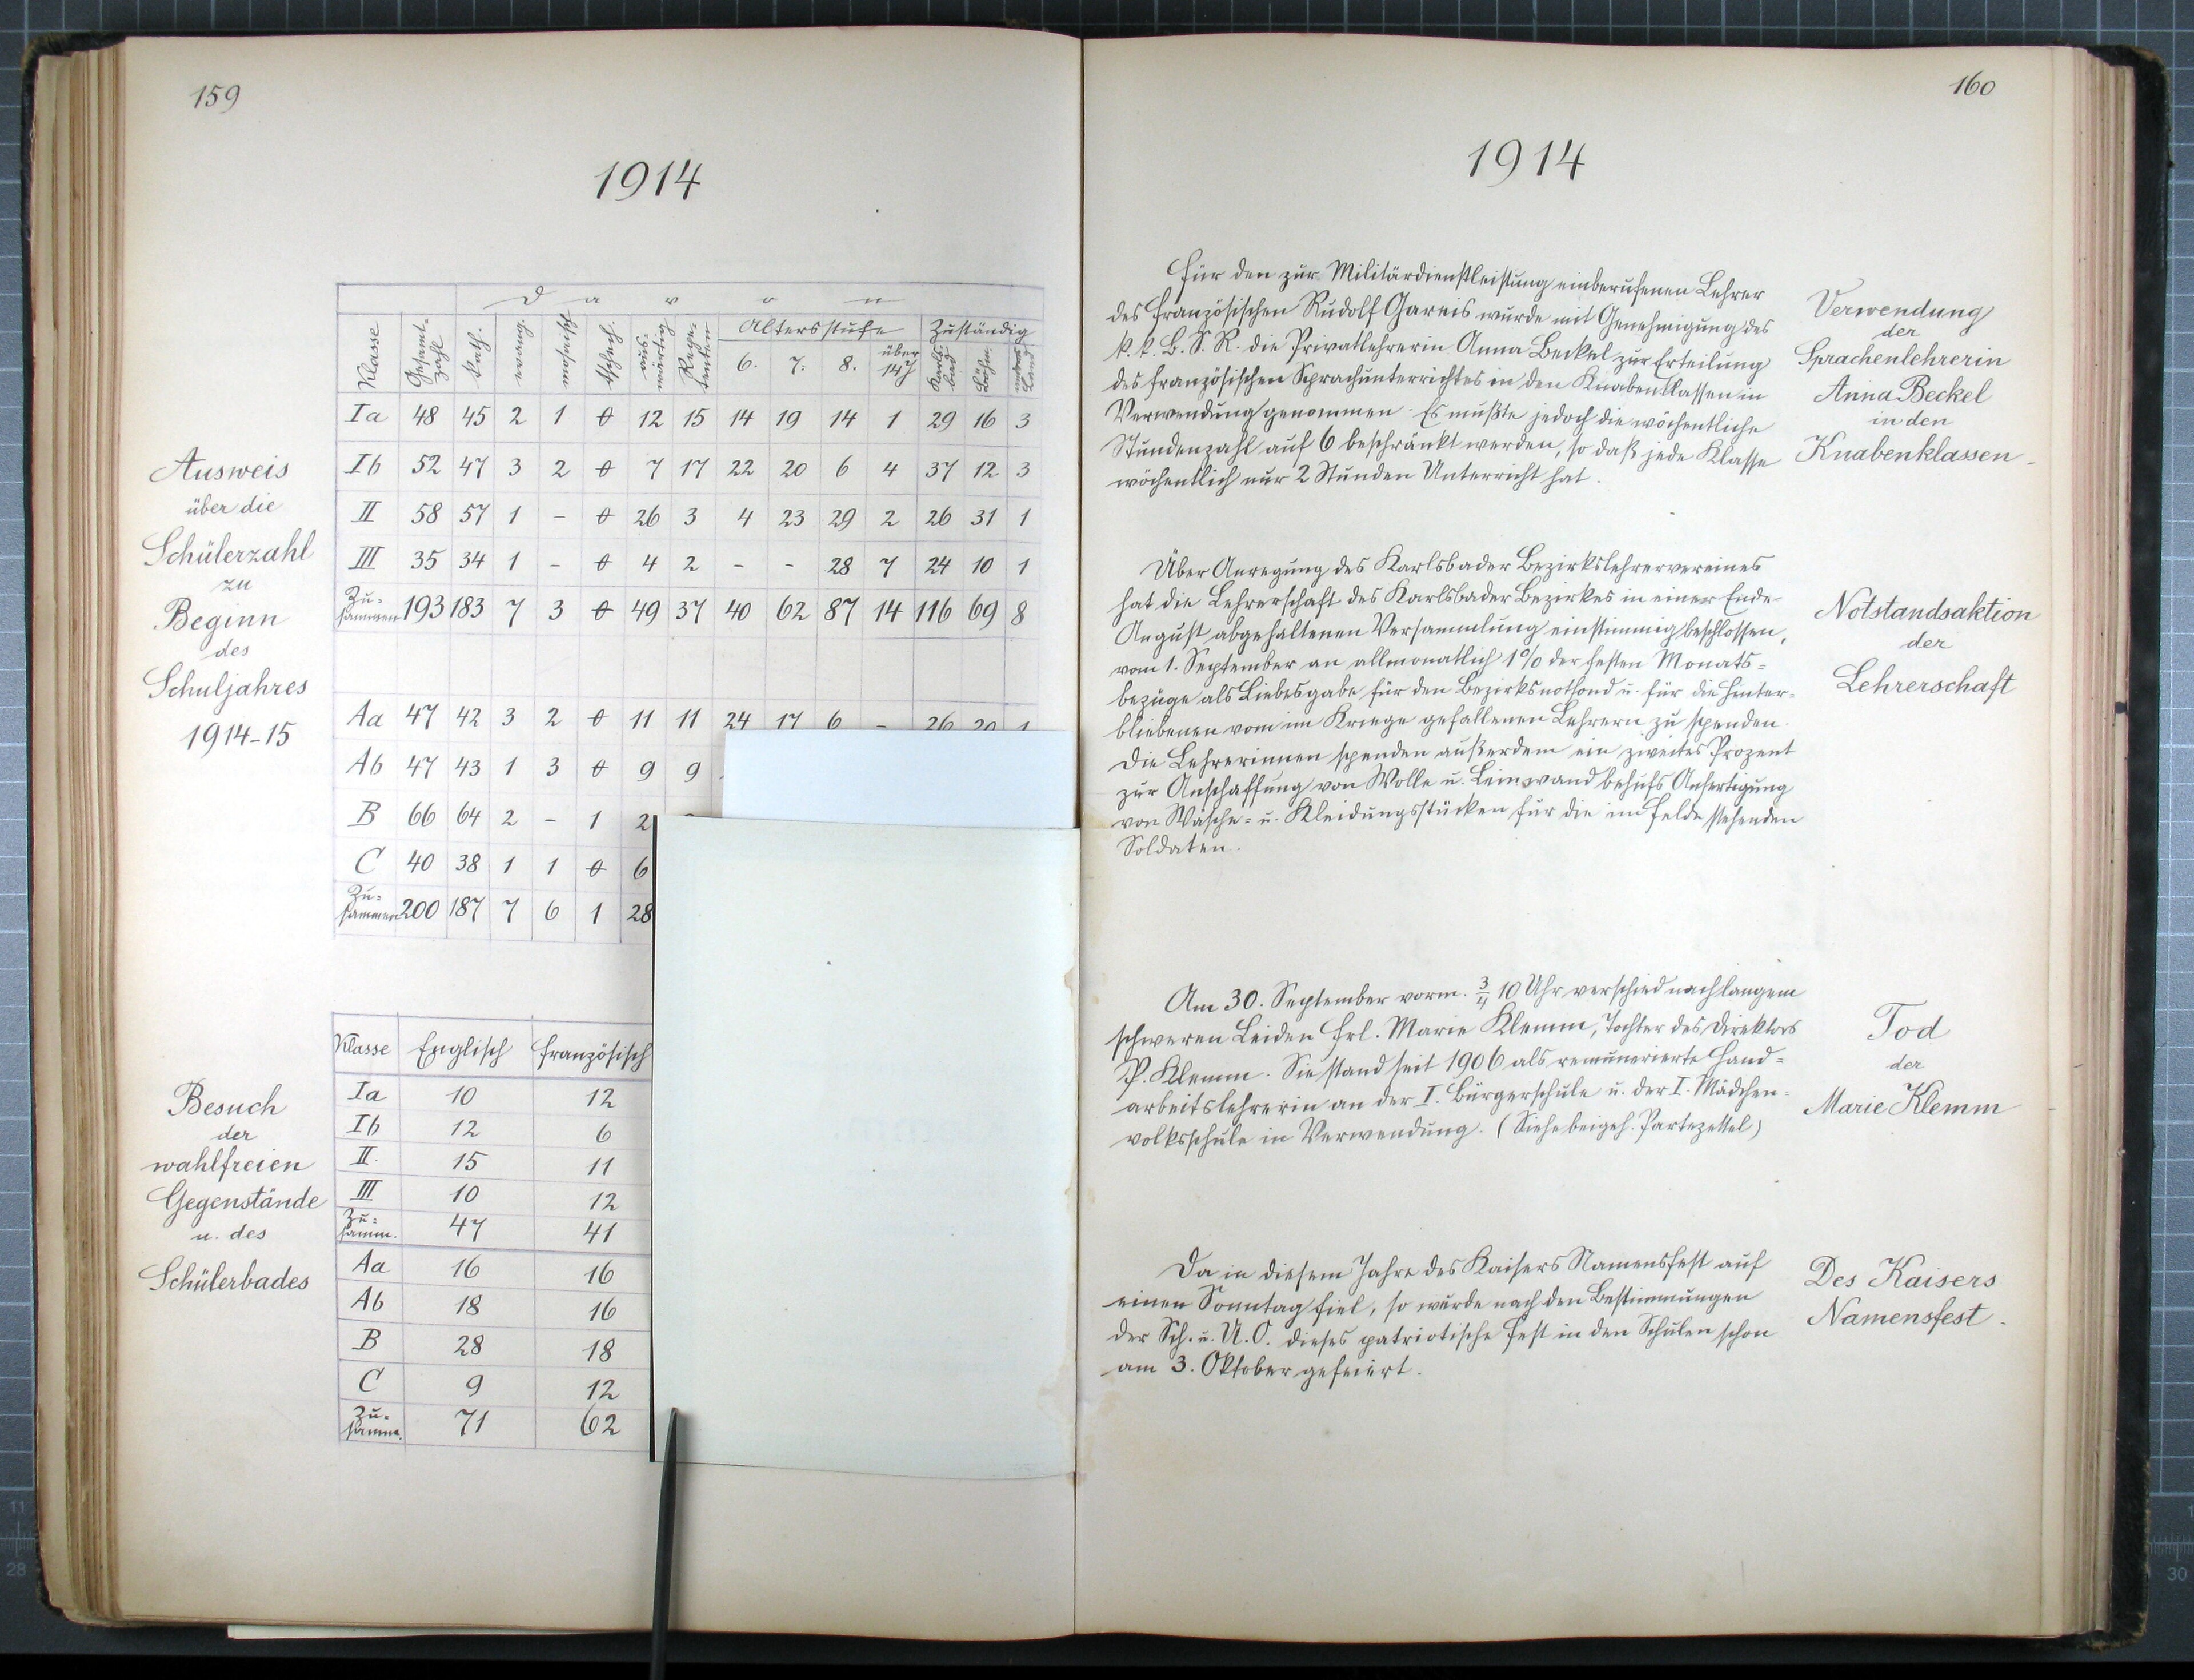 159
1914
Ausweis
über die
Schülerzahl
zu
Beginn
des
Schuljahres
1914-15
Davon
Klasse Gesamtzahl kath. evang. mosaisch tschech. auswärtig Repetenten Altersstufe Zuständig
6. 7. 8. über 14 J Karlsbad Böhm. anderes Land
Ia 48 45 2 1 0 12 15 14 19 14 1 29 16 3
Ib 52 47 3 2 0 7 17 22 20 6 4 37 12 3
II 58 57 1 - 0 26 3 4 23 29 2 26 31 1
III 35 34 1 - 0 4 2 - - 28 7 24 10 1
Zusammen 193 183 7 3 0 49 37 40 62 87 14 116 69 8
Aa 47 42 3 2 0 11 11 24 17 6 - 26 20 1
Ab 47 43 1 3 0 9 9
B 66 64 2 - 1 2
C 40 38 1 1 0 6
Zusammen 200 187 7 6 1 28
Besuch
der
wahlfreien
Gegenstände
u. des
Schülerbades
Klasse Englisch Französisch
Ia 10 12
Ib 12 6
II. 15 11
III 10 12
Zusamm. 47 41
Aa 16 16
Ab 18 16
B 28 18
C 9 12
Zusamm. 71 62
160
1914
Für den zur Militärdienstleistung einberufenen Lehrer
des Französischen Rudolf Gareis wurde mit Genehmigung des
k. k. B. S. R. die Privatlehrerin Anna Beckel zur Erteilung
des französischen Sprachunterrichtes in den Knabenklassen in
Verwendung genommen. Es mußte jedoch die wöchentliche
Stundenzahl auf 6 beschränkt werden, so daß jede Klasse
wöchentlich nur 2 Stunden Unterricht hat.
Verwendung
der
Sprachenlehrerin
Anna Beckel
in den
Knabenklassen
Über Anregung des Karlsbader Bezirkslehrervereines
hat die Lehrerschaft des Karlsbader Bezirkes in einer Ende
August abgehaltenen Versammlung einstimmig beschlossen,
vom 1. September an allmonatlich 1% der festen Monats-
bezüge als Liebesgabe für den Bezirksnotfond u. für die Hinter-
bliebenen vom im Kriege gefallenen Lehrern zu spenden.
Die Lehrerinnen spenden außerdem ein zweites Prozent
zur Anschaffung von Wolle u. Leinwand behufs Anfertigung
von Wäsche- u. Kleidungsstücken für die im Felde stehenden
Soldaten.
Notstandsaktion
der
Lehrerschaft
Am 30. September vorm. 3/4 10 Uhr verschied nach langem
schweren Leiden Frl. Marie Klemm, Tochter des Direktors
P. Klemm. Sie stand seit 1906 als remunerierte Hand-
arbeitslehrerin an der I. Bürgerschule u. der I. Mädchen-
volksschule in Verwendung. (Siehe beigeh. Partezettel)
Tod
der
Marie Klemm
Da in diesem Jahre des Kaisers Namensfest auf
einen Sonntag fiel, so wurde nach den Bestimmungen
der Sch. u. U. O. dieses patriotische Fest in den Schulen schon
am 3. Oktober gefeiert.
Des Kaisers
Namensfest.